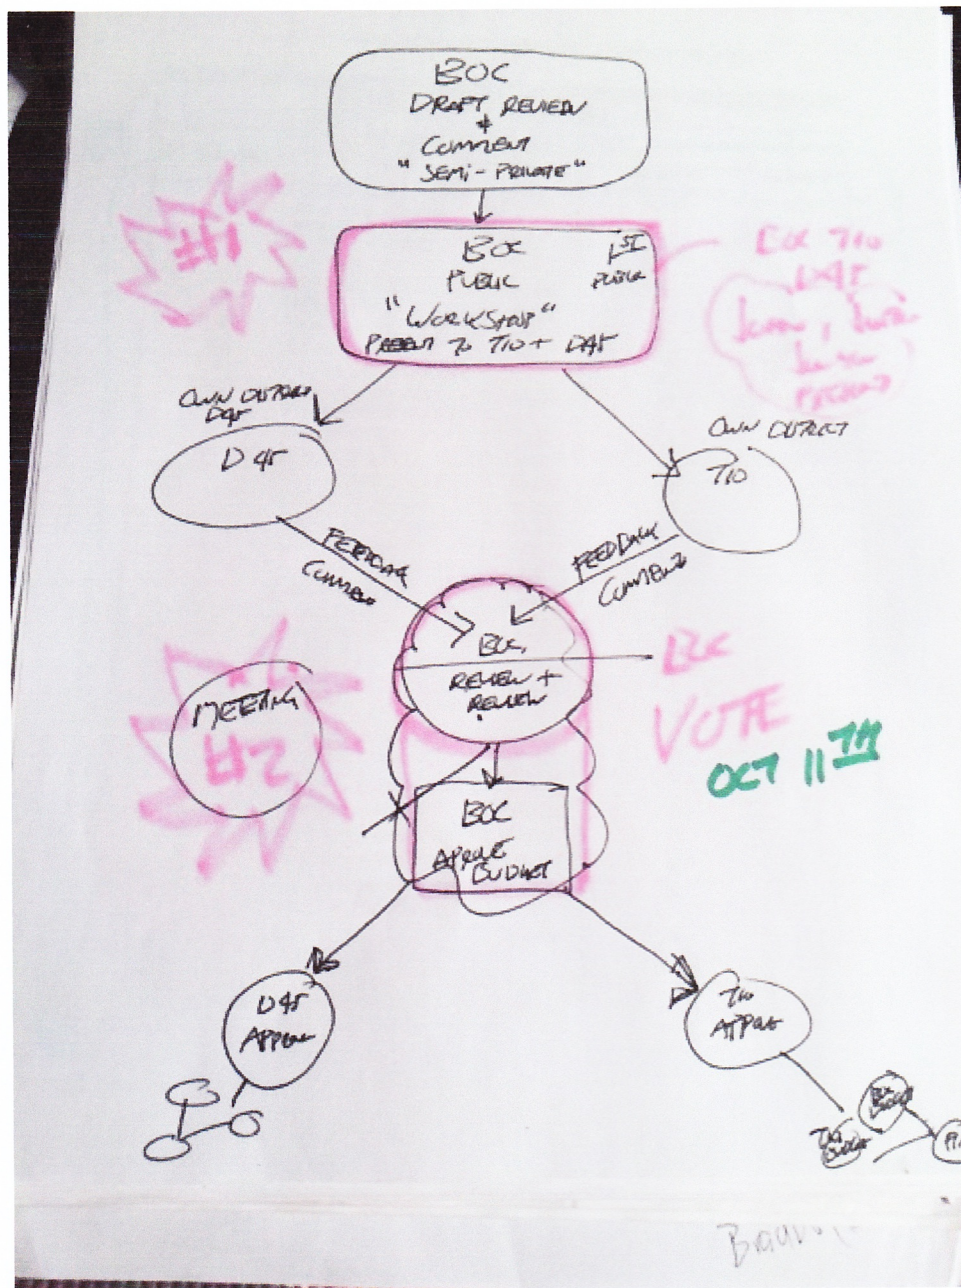 BOC
DRAFT REVIEW
+
COMMENT
"SEMI-PRIVATE"
#1
BOC
1ST
PUBLIC
PUBLIC
"WORKSHOP"
PRESENT TO T10 + D45
BOC T10
D45
OWN DISTRICT
D45
D45
OWN DISTRICT
T10
FEEDBACK
COMMENT
FEEDBACK
COMMENT
BOC
REVIEW +
REVIEW
BOC
VOTE
OCT 11TH
MEETING
#2
BOC
APROVE
BUDGET
D45
APPROVE
T10
APPROVE
BUDGET